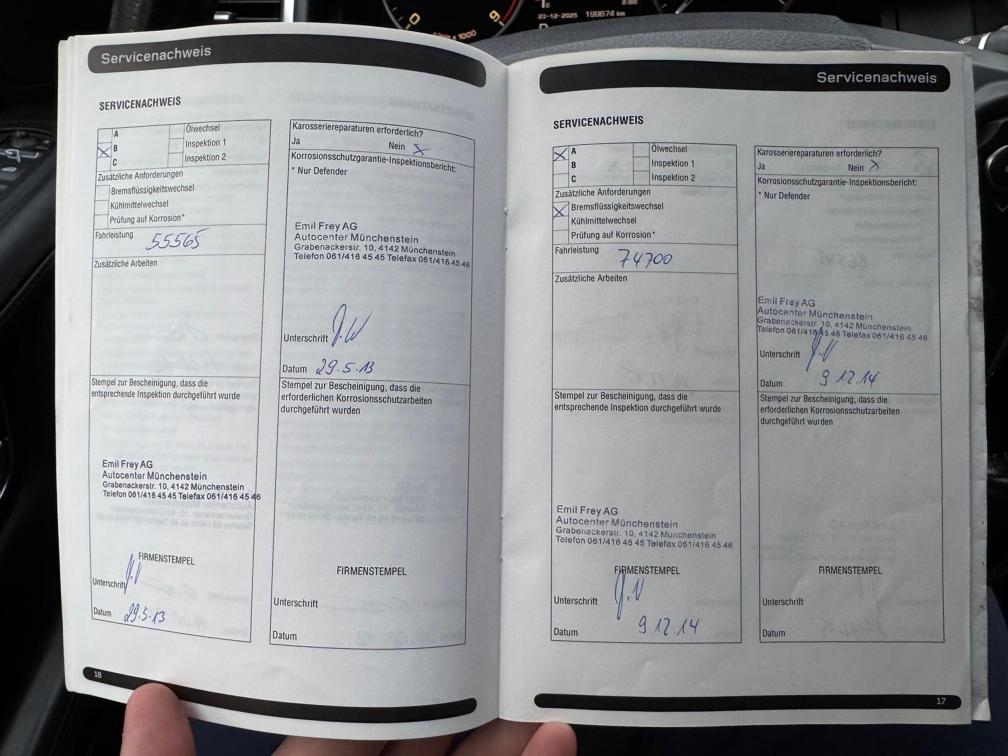 0
9
x 1000
23-12-2025 189874 km
Servicenachweis
SERVICENACHWEIS
A
B
C
Ölwechsel
Inspektion 1
Inspektion 2
Zusätzliche Anforderungen
Bremsflüssigkeitswechsel
Kühlmittelwechsel
Prüfung auf Korrosion*
Fahrleistung 55565
Zusätzliche Arbeiten
Stempel zur Bescheinigung, dass die
entsprechende Inspektion durchgeführt wurde
Emil Frey AG
Autocenter Münchenstein
Grabenackerstr. 10, 4142 Münchenstein
Telefon 061/416 45 45 Telefax 061/416 45 46
FIRMENSTEMPEL
Unterschrift
Datum 29.5.13
Karosseriereparaturen erforderlich?
Ja Nein X
Korrosionsschutzgarantie-Inspektionsbericht:
* Nur Defender
Emil Frey AG
Autocenter Münchenstein
Grabenackerstr. 10, 4142 Münchenstein
Telefon 061/416 45 45 Telefax 061/416 45 46
Unterschrift
Datum 29.5.13
Stempel zur Bescheinigung, dass die
erforderlichen Korrosionsschutzarbeiten
durchgeführt wurden
FIRMENSTEMPEL
Unterschrift
Datum
16
Servicenachweis
SERVICENACHWEIS
X A
B
C
Ölwechsel
Inspektion 1
Inspektion 2
Zusätzliche Anforderungen
X Bremsflüssigkeitswechsel
Kühlmittelwechsel
Prüfung auf Korrosion*
Fahrleistung 74700
Zusätzliche Arbeiten
Stempel zur Bescheinigung, dass die
entsprechende Inspektion durchgeführt wurde
Emil Frey AG
Autocenter Münchenstein
Grabenackerstr. 10, 4142 Münchenstein
Telefon 061/416 45 45 Telefax 061/416 45 46
FIRMENSTEMPEL
Unterschrift
Datum 9 12.14
Karosseriereparaturen erforderlich?
Ja Nein X
Korrosionsschutzgarantie-Inspektionsbericht:
* Nur Defender
Emil Frey AG
Autocenter Münchenstein
Grabenackerstr. 10, 4142 Münchenstein
Telefon 061/416 45 45 Telefax 061/416 45 46
Unterschrift
Datum 9 12.14
Stempel zur Bescheinigung, dass die
erforderlichen Korrosionsschutzarbeiten
durchgeführt wurden
FIRMENSTEMPEL
Unterschrift
Datum
17